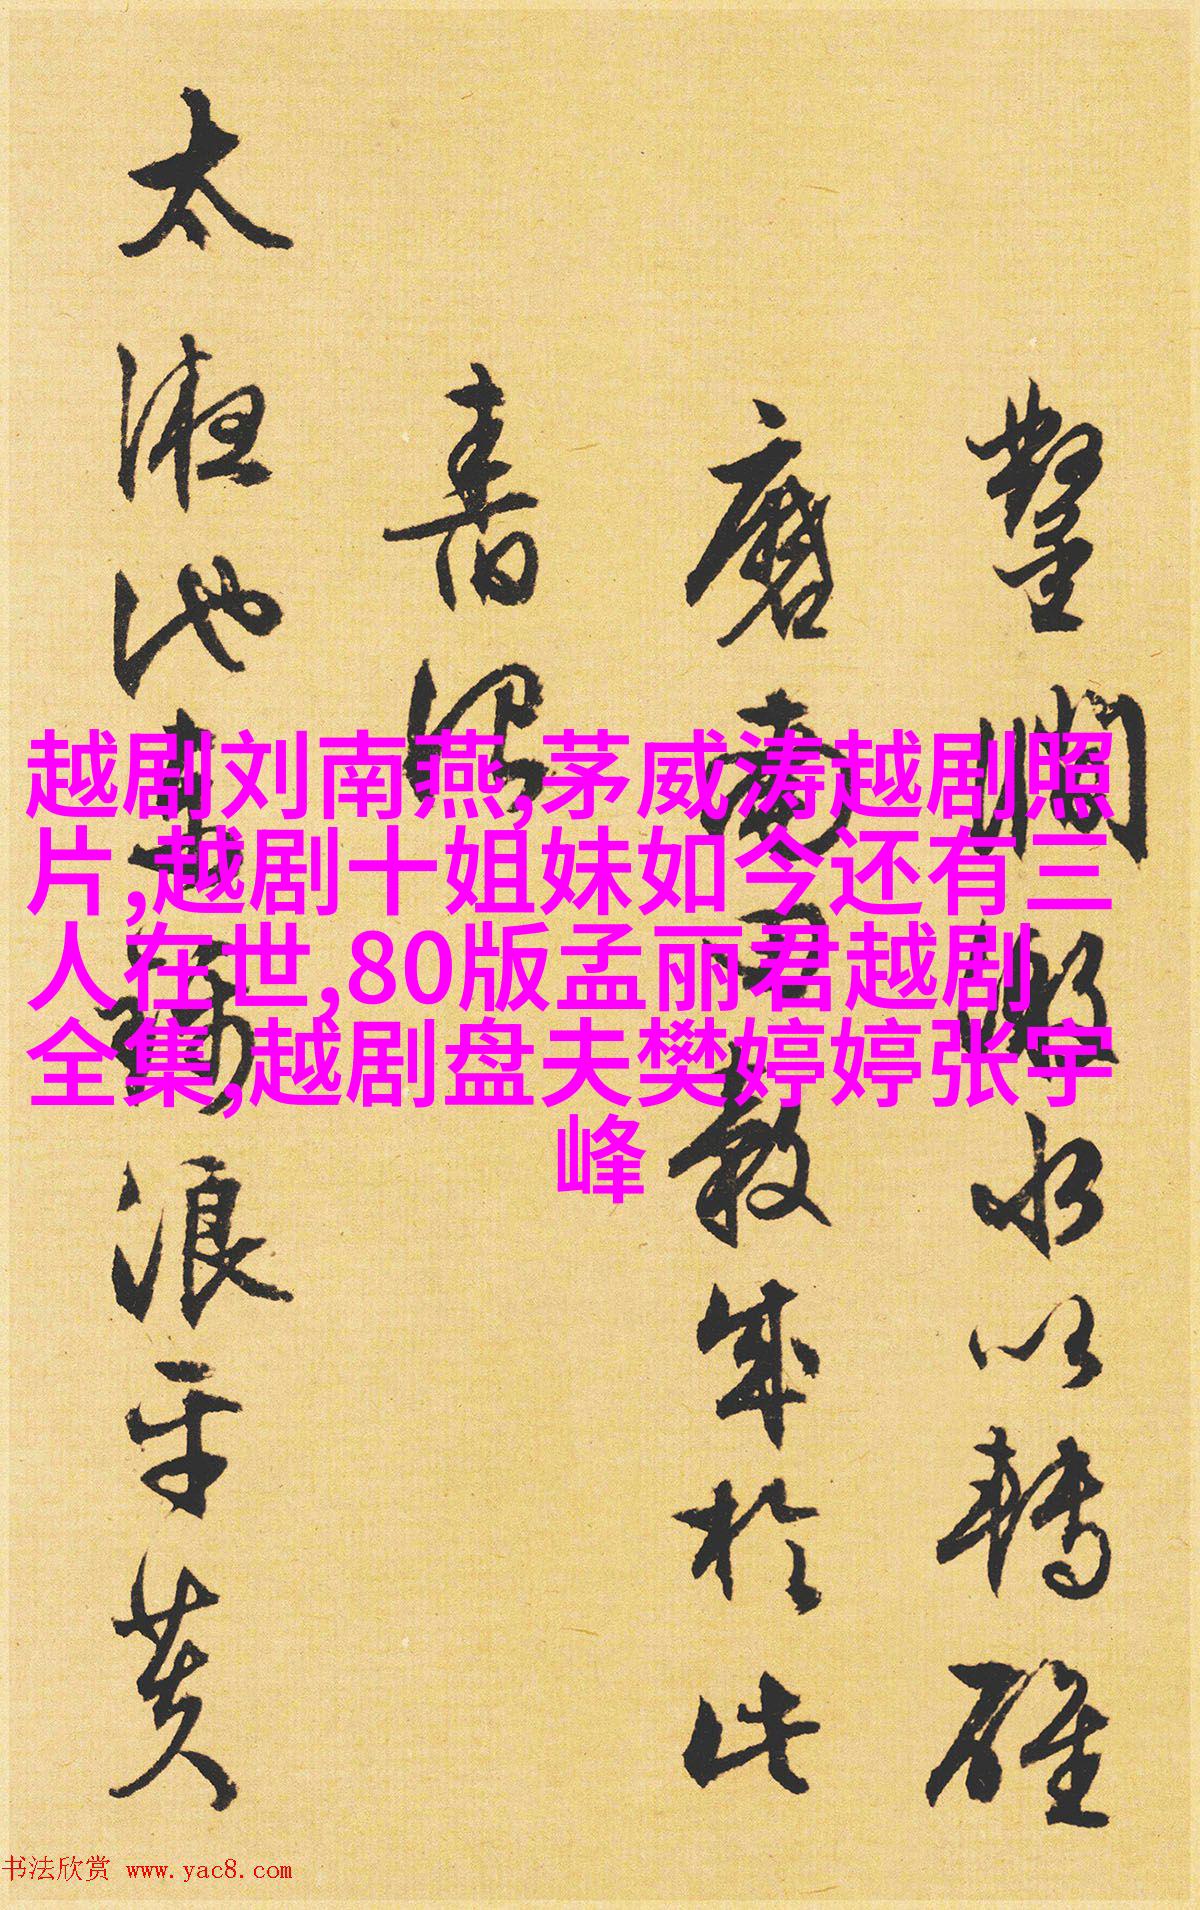 越剧刘南燕,茅威涛越剧照
片,越剧十姐妹如今还有三
人在世,80版孟丽君越剧
全集,越剧盘夫樊婷婷张宇
峰
鑿澗激水以轉碓
磨南數成於此
太液池浪平黄
书法欣赏 www.yac8.com